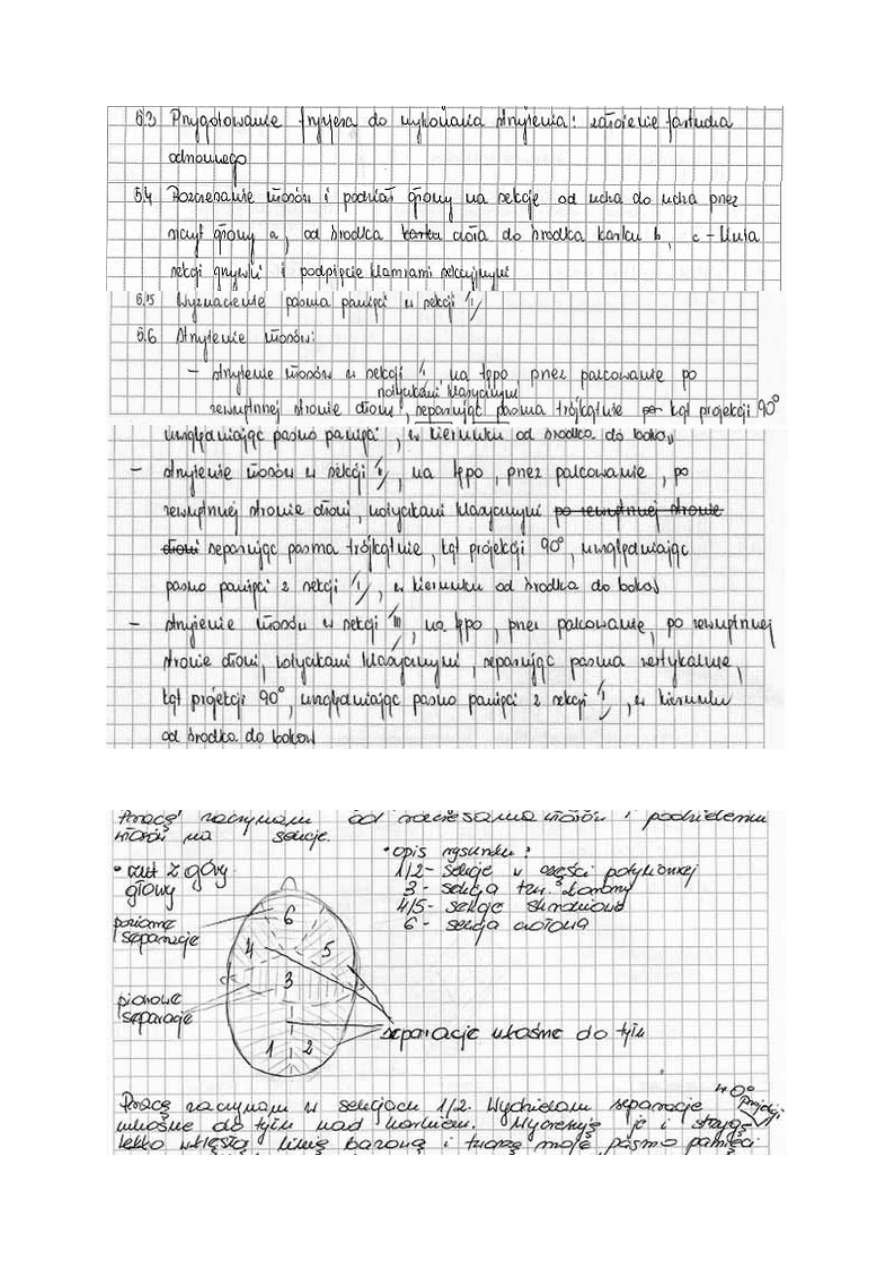 5.3 Przygotowanie fryzjera do wykonania strzyżenia: założenie fartucha
ochronnego
5.4 Rozczesanie włosów i podział głowy na sekcje od ucha do ucha przez
szczyt głowy a, od środka karku czoła do środka karku b, c - linia
sekcji grzywki i podpięcie klamrami sekcyjnymi
5.5 Wyznaczenie pasma pamięci w sekcji I
5.6 Strzyżenie włosów:
- strzyżenie włosów w sekcji I, na tępo, przez palcowanie po
nożyczkami klasycznymi
zewnętrznej stronie dłoni, separując pasma trójkątnie kąt projekcji 90°
uwzględniając pasmo pamięci, w kierunku od środka do boków
- strzyżenie włosów w sekcji, na tępo, przez palcowanie, po
zewnętrznej stronie dłoni, nożyczkami klasycznymi po zewnętrznej stronie
dłoni separując pasma trójkątnie, kąt projekcji 90°, uwzględniając
pasmo pamięci z sekcji I, w kierunku od środka do boków
- strzyżenie włosów w sekcji III, na tępo, przez palcowanie, po zewnętrznej
stronie dłoni, nożyczkami klasycznymi, separując pasma wertykalnie,
kąt projekcji 90°, uwzględniając pasmo pamięci z sekcji I, w kierunku
od środka do boków
Pracę zaczynam od rozczesania włosów i podzieleniu
włosów na sekcje.
• rzut z góry
głowy
• opis rysunku:
1/2 - sekcje w części potylicznej
3 - sekcja tzw.
4/5 - sekcje skroniowe
6 - sekcja czołowa
poziome
separacje
6
4
5
3
pionowe
separacje
1
2
separacje ukośne do tyłu
Pracę zaczynam w sekcjach 1/2. Wydzielam separacje 40° projekcji
ukośne do tyłu nad karkiem. Wyczesuję je i strzygę
lekko wklęsłą linię bazową i tworzę moje pasmo pamięci.